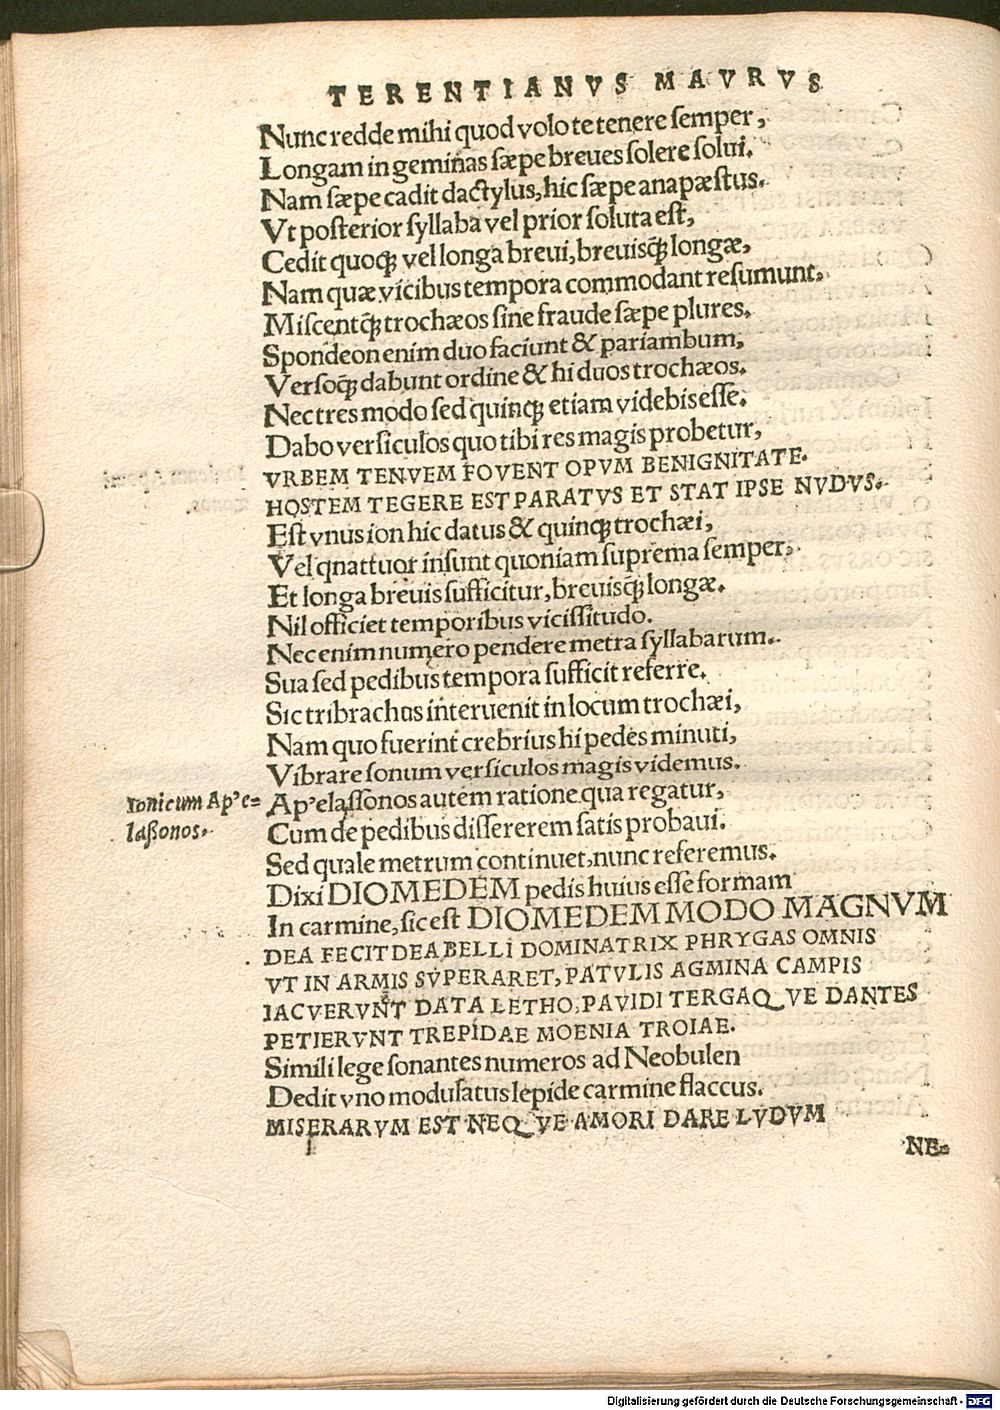 TERENTIANVS MAVRVS
Nunc redde mihi quod volo te tenere semper,
Longam in geminas sæpe breues solere solui.
Nam sæpe cadit dactylus, hic sæpe anapæstus.
Vt posterior syllaba vel prior soluta est,
Cedit quoq; vel longa breui, breuisq; longæ,
Nam quæ vicibus tempora commodant resumunt.
Miscentq; trochæos sine fraude sæpe plures.
Spondeon enim duo faciunt & pariambum,
Versoq; dabunt ordine & hi duos trochæos.
Nec tres modo sed quinq; etiam videbis esse.
Dabo versiculos quo tibi res magis probetur,
VRBEM TENVEM FOVENT OPVM BENIGNITATE.
HOSTEM TEGERE EST PARATVS ET STAT IPSE NVDVS.
Est vnus ion hic datus & quinq; trochæi,
Vel qnattuor insunt quoniam suprema semper,
Et longa breuis sufficitur, breuisq; longæ.
Nil officiet temporibus vicissitudo.
Nec enim numero pendere metra syllabarum.
Sua sed pedibus tempora sufficit referre.
Sic tribrachos interuenit in locum trochæi,
Nam quo fuerint crebrius hi pedes minuti,
Vibrare sonum versiculos magis videmus.
Ionicum Ap'e=
lassonos.
Ap'elassonos autem ratione qua regatur,
Cum de pedibus dissererem satis probaui.
Sed quale metrum continuet, nunc referemus.
Dixi DIOMEDEM pedis huius esse formam
In carmine, sic est DIOMEDEM MODO MAGNVM
DEA FECIT DEA BELLI DOMINATRIX PHRYGAS OMNIS
VT IN ARMIS SVPERARET, PATVLIS AGMINA CAMPIS
IACVERVNT DATA LETHO, PAVIDI TERGAQVE DANTES
PETIERVNT TREPIDAE MOENIA TROIAE.
Simili lege sonantes numeros ad Neobulen
Dedit vno modulatus lepide carmine flaccus.
MISERARVM EST NEQVE AMORI DARE LVDVM
NE=
Digitalisierung gefördert durch die Deutsche Forschungsgemeinschaft - DFG